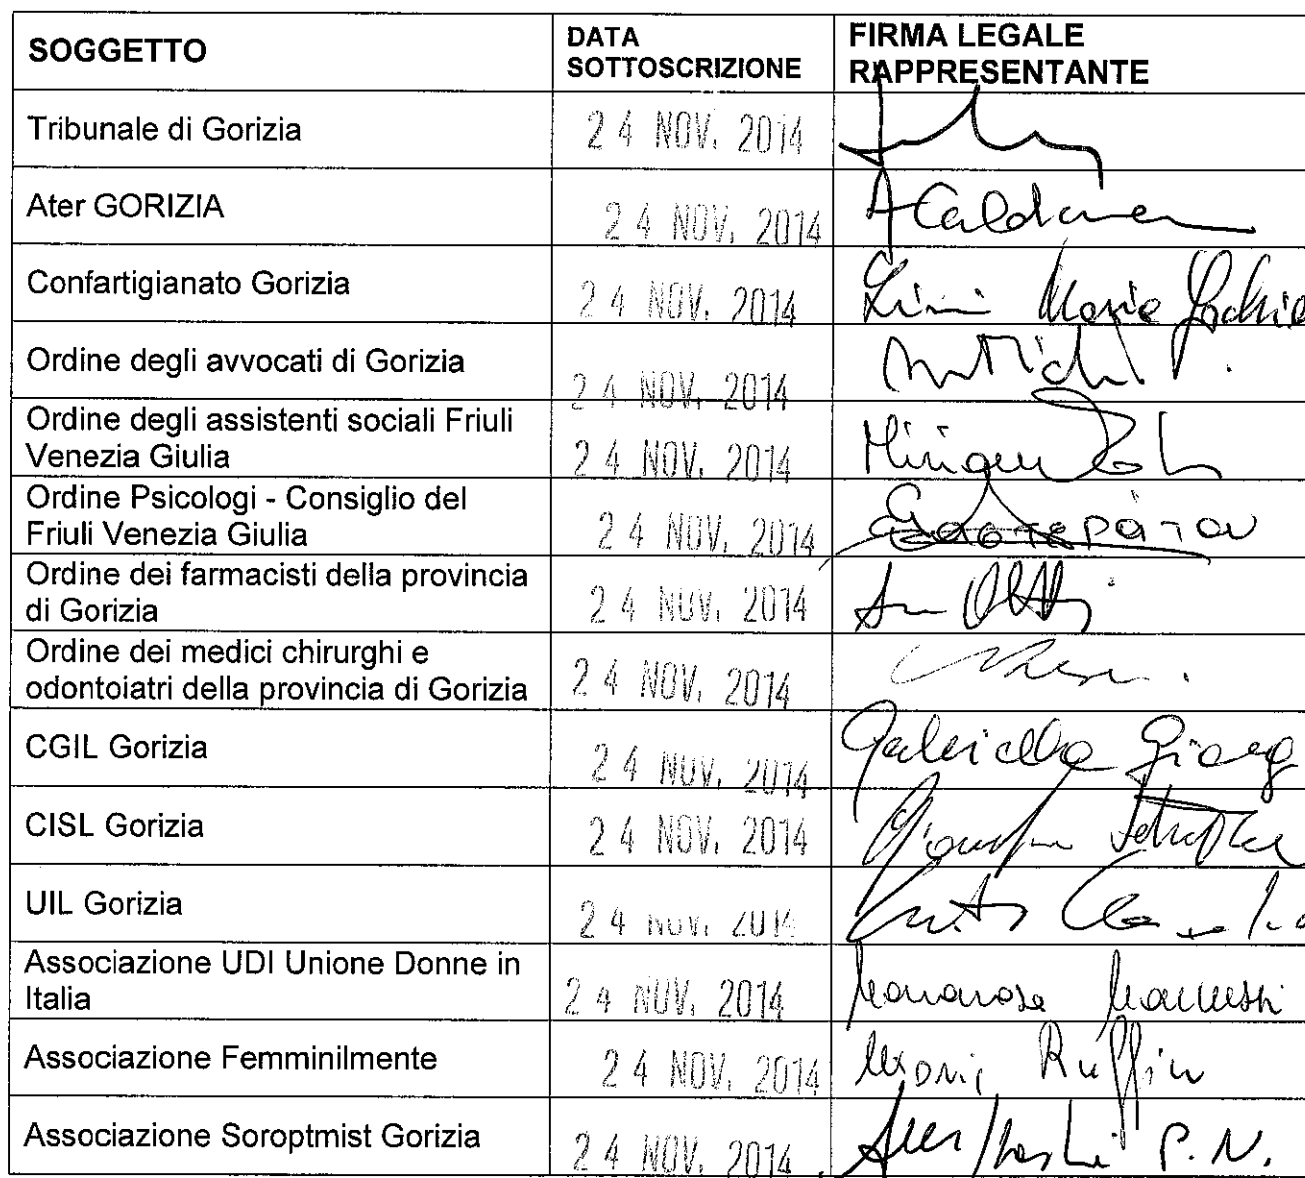 SOGGETTO
DATA
SOTTOSCRIZIONE
FIRMA LEGALE
RAPPRESENTANTE
Tribunale di Gorizia
24 NOV. 2014
Ater GORIZIA
24 NOV. 2014
Confartigianato Gorizia
24 NOV. 2014
Maria
Ordine degli avvocati di Gorizia
24 NOV. 2014
Ordine degli assistenti sociali Friuli
Venezia Giulia
24 NOV. 2014
Ordine Psicologi - Consiglio del
Friuli Venezia Giulia
24 NOV. 2014
Ordine dei farmacisti della provincia
di Gorizia
24 NOV. 2014
Ordine dei medici chirurghi e
odontoiatri della provincia di Gorizia
24 NOV. 2014
CGIL Gorizia
24 NOV. 2014
Gabriella
CISL Gorizia
24 NOV. 2014
UIL Gorizia
24 NOV. 2014
Associazione UDI Unione Donne in
Italia
24 NOV. 2014
Associazione Femminilmente
24 NOV. 2014
Ruffin
Associazione Soroptmist Gorizia
24 NOV. 2014
P.N.